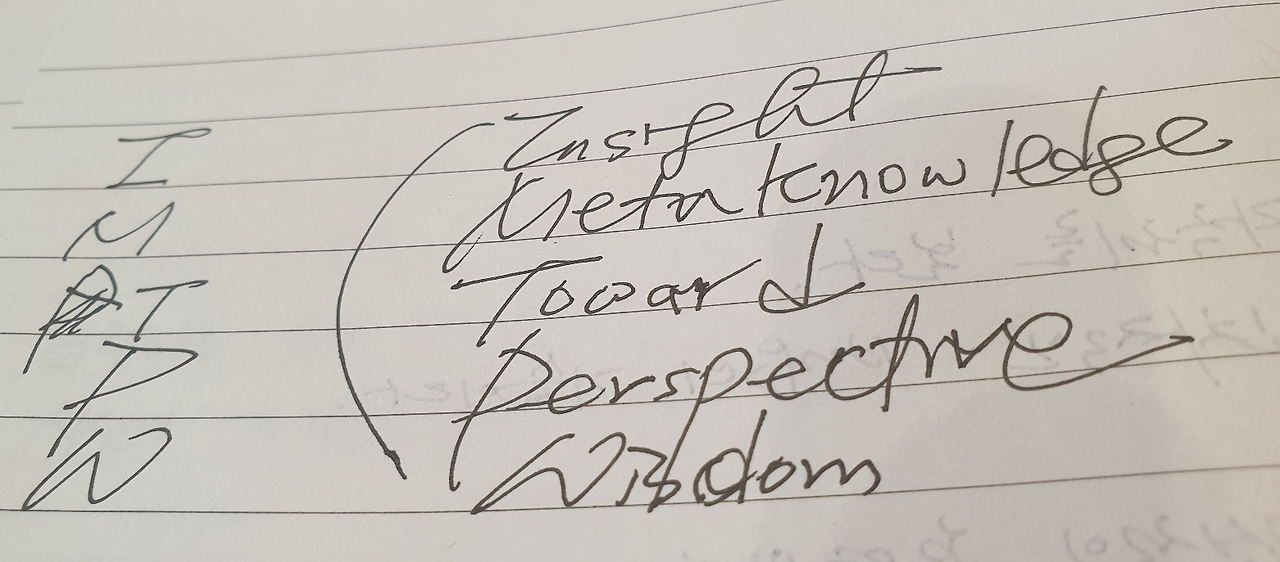 I Insight
M Meta knowledge
T Toward
P Perspective
W Wisdom